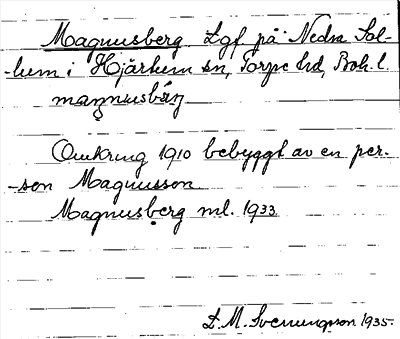 Magnusberg Lgf. på Nedra Sol-
-hem i Hjärtum sn, Torpe hd, Boh. l.
maŋnusbärj
Omkring 1910 bebyggt av en per-
-son Magnusson.
Magnusberg ml. 1933
D. M. Svenungson 1935.